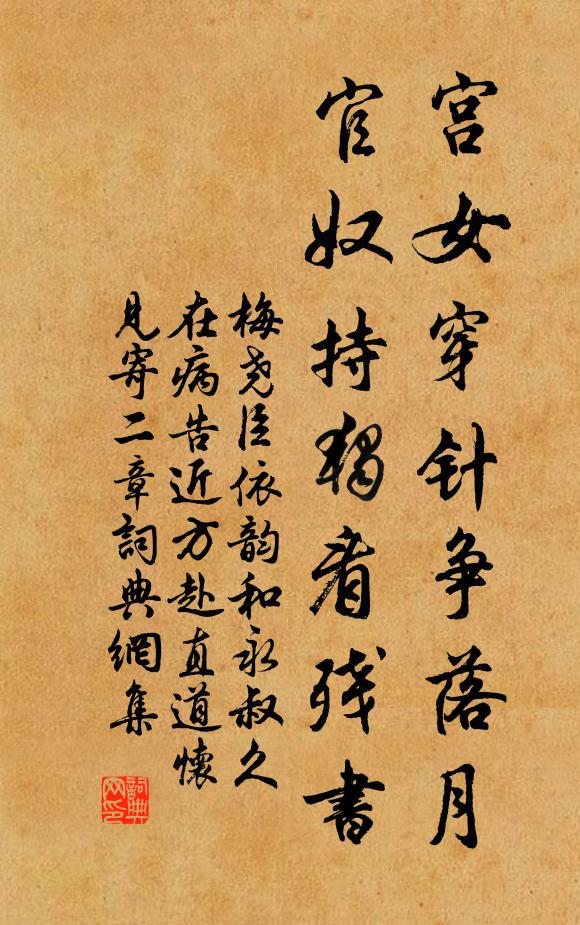 宫女穿针争落月
官奴持燭看残書
梅尧臣依韵和永叔久
在病告近方赴直道懷
見寄二章詞典網集
詞典网印